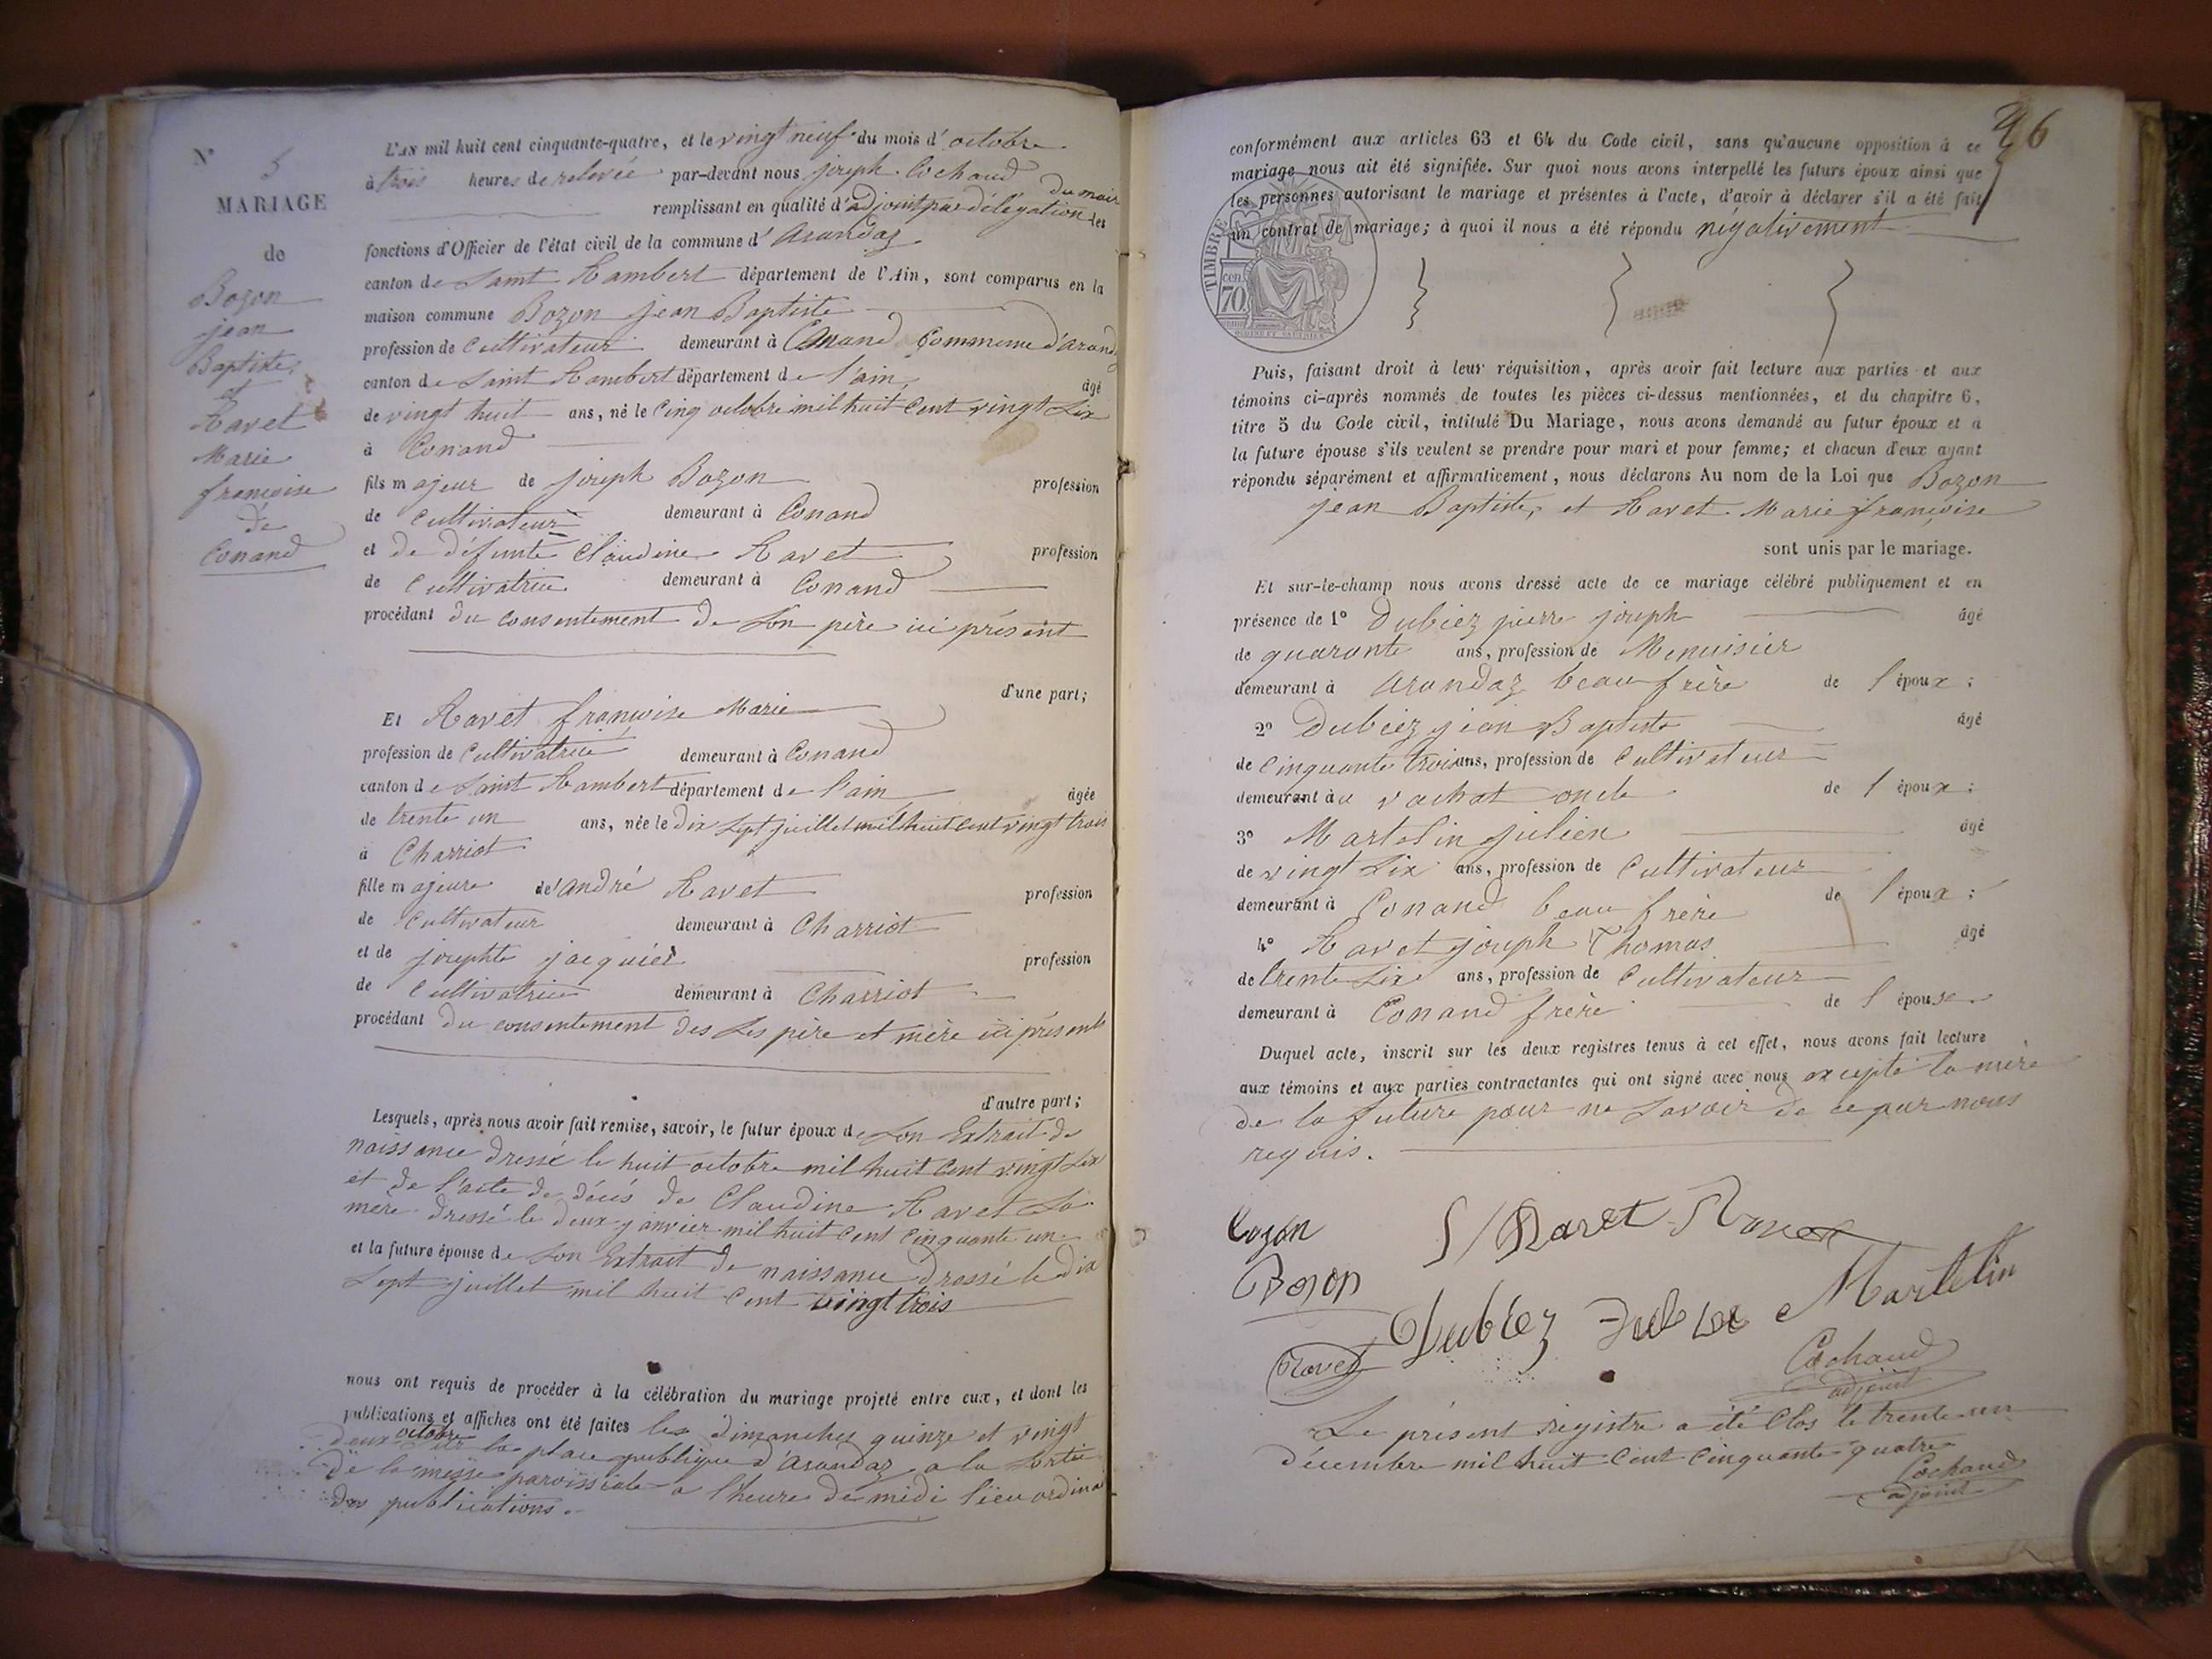 N° 5
MARIAGE
de
Bozon
jean
Baptiste
et
Ravet
Marie
françoise
de
Conand
L'AN mil huit cent cinquante-quatre, et le vingt neuf du mois d'octobre
à trois heures de relevée par-devant nous joseph Cochaud
remplissant en qualité d'adjoint par délégation du maire les
fonctions d'Officier de l'état civil de la commune d'Arandaz
canton de Saint Rambert département de l'Ain, sont comparus en la
maison commune Bozon jean Baptiste
profession de Cultivateur demeurant à Conand Commune d'Arandaz
canton de Saint Rambert département de l'ain, âgé
de vingt huit ans, né le Cinq octobre mil huit Cent vingt Six
à Conand
fils majeur de joseph Bozon profession
de Cultivateur demeurant à Conand
et de défunte Claudine Ravet profession
de Cultivatrice demeurant à Conand
procédant du consentement de Son père ici présent
d'une part;
Et Ravet françoise Marie
profession de Cultivatrice demeurant à Conand
canton de Saint Rambert département de l'ain âgée
de trente un ans, née le Dix Sept juillet mil huit Cent vingt trois
à Charriot
fille majeure de andré Ravet profession
de Cultivateur demeurant à Charriot
et de josephte jacquier profession
de Cultivatrice demeurant à Charriot
procédant du consentement des Ses père et mère ici présents
d'autre part;
Lesquels, après nous avoir fait remise, savoir, le futur époux de Son Extrait de
naissance dressé le huit octobre mil huit Cent vingt Six
et de l'acte de décès de Claudine Ravet Sa
mère dressé le deux janvier mil huit Cent Cinquante un
et la future épouse de Son Extrait de naissance dressé le dix
Sept juillet mil huit Cent vingt trois
nous ont requis de procéder à la célébration du mariage projeté entre eux, et dont les
publications et affiches ont été faites les dimanches quinze et vingt
deux octobre sur la place publique d'Arandaz a la Sortie
de la messe paroissiale a l'heure de midi lieu ordinai
des publications.
96
conformément aux articles 63 et 64 du Code civil, sans qu'aucune opposition à ce
mariage nous ait été signifiée. Sur quoi nous avons interpellé les futurs époux ainsi que
les personnes autorisant le mariage et présentes à l'acte, d'avoir à déclarer s'il a été fait
un contrat de mariage; à quoi il nous a été répondu négativement
TIMBRE
cen.
70
Puis, faisant droit à leur réquisition, après avoir fait lecture aux parties et aux
témoins ci-après nommés de toutes les pièces ci-dessus mentionnées, et du chapitre 6,
titre 5 du Code civil, intitulé Du Mariage, nous avons demandé au futur époux et à
la future épouse s'ils veulent se prendre pour mari et pour femme; et chacun d'eux ayant
répondu séparément et affirmativement, nous déclarons Au nom de la Loi que Bozon
jean Baptiste, et Ravet Marie françoise
sont unis par le mariage.
Et sur-le-champ nous avons dressé acte de ce mariage célébré publiquement et en
présence de 1° Dubiez pierre joseph âgé
de quarante ans, profession de Menuisier
demeurant à Arandaz beau frère de l'époux;
2° Dubiez jean Baptiste âgé
de Cinquante trois ans, profession de Cultivateur
demeurant au vachat oncle de l'époux;
3° Martelin julien âgé
de vingt Six ans, profession de Cultivateur
demeurant à Conand beau frère de l'époux;
4° Ravet joseph Thomas âgé
de trente Six ans, profession de Cultivateur
demeurant à Conand frère de l'épouse
Duquel acte, inscrit sur les deux registres tenus à cet effet, nous avons fait lecture
aux témoins et aux parties contractantes qui ont signé avec nous excepté la mère
de la future pour ne Savoir de ce par nous
requis.
Bozon
Ravet
Bozon
Dubiez
Martelin
Ravet
Cochaud
adjoint
Le présent registre a été Clos le trente un
décembre mil huit Cent Cinquante quatre
Cochaud
adjoint